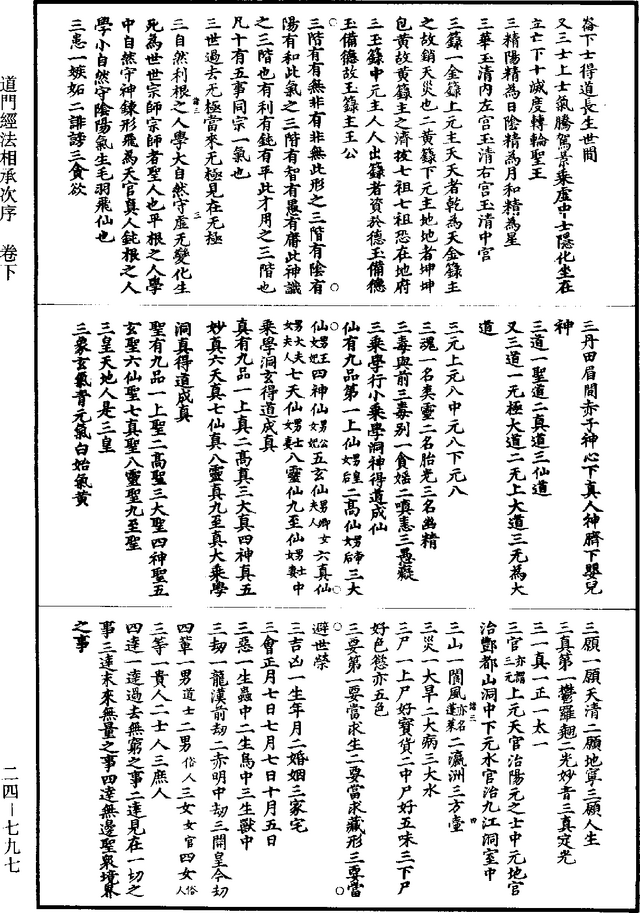 道門經法相承次序 卷下
二四—七九七
崙下士得道長生世間
又三士上士氣騰駕景乘虛中士隱化坐在
立亡下士滅度轉輪聖王
三精陽精為日陰精為月和精為星
三華玉清內左宮玉清右宮玉清中宮
三籙一金籙上元主天天者乾為天金籙主
之故銷天災也二黃籙下元主地地者坤坤
包黃故黃籙主之濟拔七祖七祖恐在地府
三玉籙中元主人人出籙者資於德玉備德
玉備德故玉籙主王公
三階有有無非有非無此形之三階有陰有
陽有和此氣之三階有智有愚有庸此神識
之三階也有利有鈍有平此才用之三階也
凡十有五事同宗一氣也
三世過去无極當來无極見在无極
三自然利根之人學大自然守虛无變化生
死為世世宗師宗師者聖人也平根之人學
中自然守神鍊形飛為天官真人鈍根之人
學小自然守陰陽氣生毛羽飛仙也
三患一嫉妬二誹謗三貪欲
三丹田眉間赤子神心下真人神臍下嬰兒
神
三道一聖道二真道三仙道
又三道一无極大道二无上大道三无為大
道
三元上元八中元八下元八
三魂一名爽靈二名胎光三名幽精
三毒與前三毒別一貪婬二嗔恚三愚癡
三乘學行小乘學洞神得道成仙
仙有九品第一上仙男皇女后二高仙男帝女后三大
仙男王女妃四神仙男公女妃五玄仙男卿女夫人六真仙
男大夫女夫人七天仙男士女妻八靈仙九至仙男士女妻中
乘學洞玄得道成真
真有九品一上真二高真三大真四神真五
妙真六天真七仙真八靈真九至真大乘學
洞真得道成真
聖有九品一上聖二高聖三大聖四神聖五
玄聖六仙聖七真聖八靈聖九至聖
三皇天地人是三皇
三象玄氣青元氣白始氣黃
三願一願天清二願地寧三願人生
三真第一鬱羅翹二光妙音三真定光
三一真一正一太一
三官亦謂三元上元天官治陽元之士中元地官
治酆都山洞中下元水官治九江洞室中
三山一閬風亦名蓬萊二瀛洲三方壺
三災一大旱二大病三大水
三尸一上尸好寶貨二中尸好五味三下尸
好色慾亦五色
三要第一要當求生二要當求藏形三要當
避世榮
三吉凶一生年月二婚姻三家宅
三會正月七日七月七日十月五日
三惡一生蟲中二生馬中三生獸中
三劫一龍漢前劫二赤明中劫三開皇今劫
四輩一男道士二男俗人三女女官四女俗人
三等一貴人二士人三庶人
四達一達過去無窮之事二達見在一切之
事三達未來無量之事四達無邊聖衆境界
之事